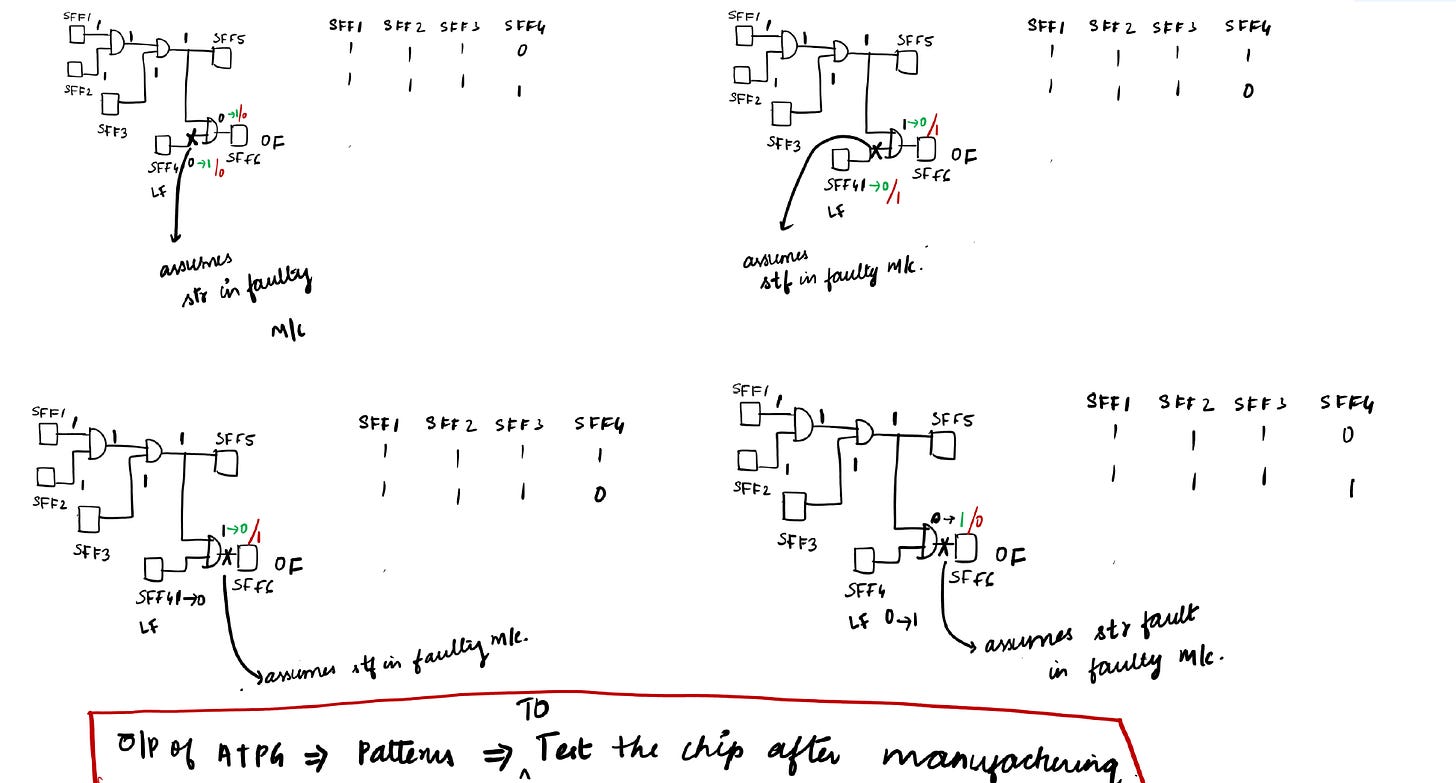 SFF1 1 1 1 SFF5
SFF2 1 1
SFF3
0→1/0
SFF4 0→1/0 SFF6 OF
LF
assumes
str in faulty
M/C
SFF1 SFF2 SFF3 SFF4
1 1 1 0
1 1 1 1
SFF1 1 1 1 SFF5
SFF2 1 1
SFF3
1→0/1
SFF4 1→0/1 SFF6 OF
LF
assumes
stf in faulty M/C.
SFF1 SFF2 SFF3 SFF4
1 1 1 1
1 1 1 0
SFF1 1 1 1 SFF5
SFF2 1 1
SFF3
1→0/1
SFF4 1→0 SFF6 OF
LF
assumes stf in faulty M/C.
SFF1 SFF2 SFF3 SFF4
1 1 1 1
1 1 1 0
SFF1 1 1 1 SFF5
SFF2 1 1
SFF3
0→1/0
SFF4 SFF6 OF
LF 0→1
assumes str fault
in faulty M/C.
SFF1 SFF2 SFF3 SFF4
1 1 1 0
1 1 1 1
TO
O/P of ATPG ⇒ Patterns ⇒ ^ Test the chip after manufacturing